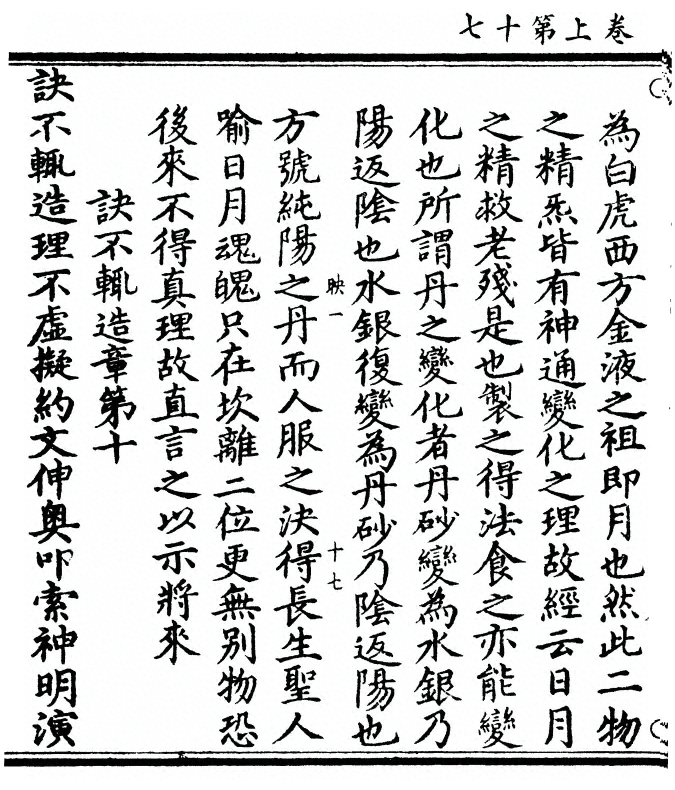 卷上第十七
為白虎西方金液之祖即月也然此二物
之精炁皆有神通變化之理故經云日月
之精救老殘是也製之得法食之亦能變
化也所謂丹之變化者丹砂變為水銀乃
陽返陰也水銀復變為丹砂乃陰返陽也
映一
十七
方號純陽之丹而人服之決得長生聖人
喻日月魂魄只在坎離二位更無別物恐
後來不得真理故直言之以示將來
訣不輒造章第十
訣不輒造理不虛擬約文伸奧叩索神明演